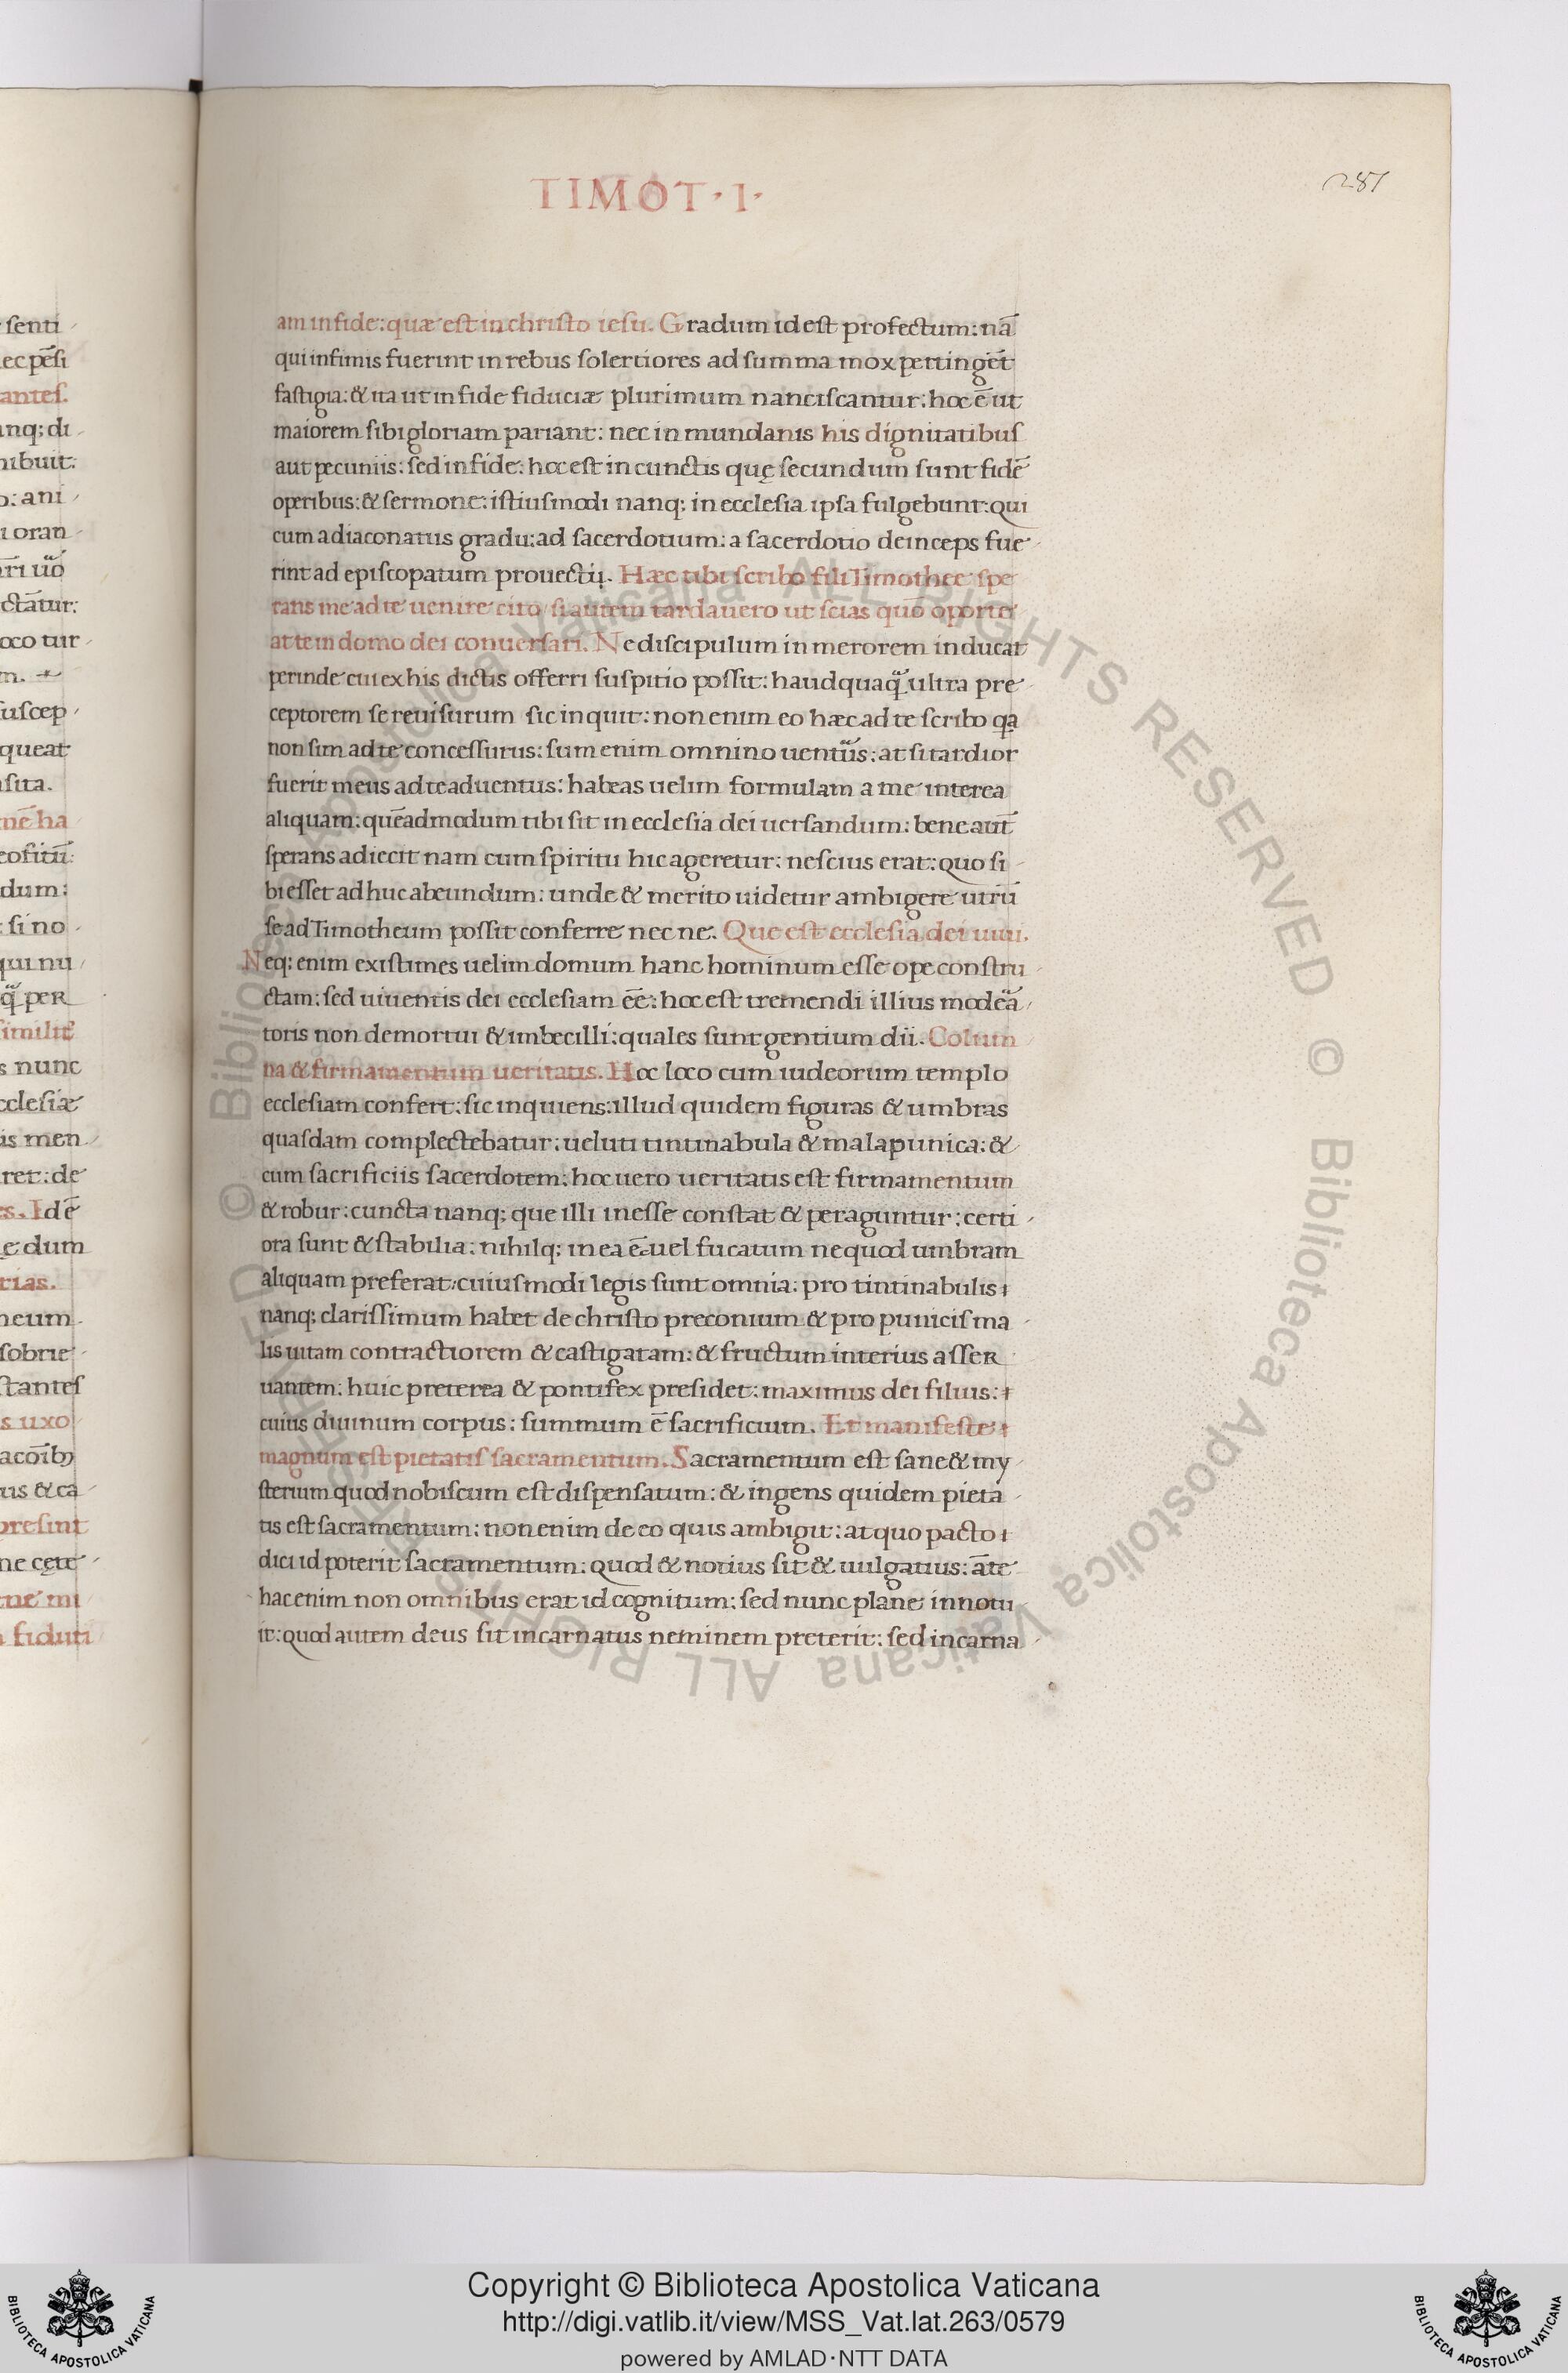 TIMOT · I ·
287
am in fide: quæ est in christo iesu. Gradum id est profectum: nā
qui infimis fuerint in rebus solertiores ad summa mox pertingēt
fastigia: & ita ut in fide fiduciæ plurimum nanciscantur: hoc ē ut
maiorem sibi gloriam pariant: nec in mundanis his dignitatibus
aut pecuniis: sed in fide: hoc est in cunctis quę secundum sunt fidē
operibus: & sermone: istiusmodi nanq; in ecclesia ipsa fulgebunt: qui
cum a diaconatus gradu: ad sacerdotium: a sacerdotio deinceps fue
rint ad episcopatum prouectij. Hæc tibi scribo fili Timothee spe
rans me ad te uenire cito si autem tardauero ut scias quō oporte
at te in domo dei conuersari. Ne discipulum in merorem inducat
perinde cui ex his dictis offerri suspitio possit: haudquaq̃ ultra pre
ceptorem se reuisurum sic inquit: non enim eo hæc ad te scribo qa
non sim ad te concessurus: sum enim omnino uentūs: at si tardior
fuerit meus ad te aduentus: habeas uelim formulam a me interea
aliquam: quēadmodum tibi sit in ecclesia dei uersandum: bene aut̄
sperans adiecit nam cum spiritu hic ageretur: nescius erat: quo si
bi esset ad huc abeundum: unde & merito uidetur ambigere utrū
se ad Timotheum possit conferre nec ne. Que est ecclesia dei uiui.
Neq; enim existimes uelim domum hanc hominum esse ope constru
ctam: sed uiuentis dei ecclesiam eē: hoc est tremendi illius modeā
toris non demortui & imbecilli: quales sunt gentium dii. Colum
na & firmamentum ueritatis. Hoc loco cum iudeorum templo
ecclesiam confert: sic inquiens: illud quidem figuras & umbras
quasdam complectebatur: ueluti tintinabula & mala punica: &
cum sacrificiis sacerdotem: hoc uero ueritatis est firmamentum
& robur: cuncta nanq; que illi inesse constat & peraguntur: certi
ora sunt & stabilia: nihilq; in ea ē uel fucatum ne quod umbram
aliquam preferat: cuiusmodi legis sunt omnia: pro tintinabulis
nanq; clarissimum habet de christo preconium & pro punicis ma
lis uitam contractiorem & castigatam: & fructum interius asser
uantem: huic preterea & pontifex presidet: maximus dei filius:
cuius diuinum corpus: summum ē sacrificium. Et manifeste
magnum est pietatis sacramentum. Sacramentum est sane & my
sterium quod nobiscum est dispensatum: & ingens quidem pieta
tis est sacramentum: non enim de eo quis ambigit: at quo pacto
dici id poterit sacramentum: quod & notius sit & uulgatius: āte
hac enim non omnibus erat id cognitum: sed nunc plane innotu
it: quod autem deus sit incarnatus neminem preterit: sed incarna
Copyright © Biblioteca Apostolica Vaticana
http://digi.vatlib.it/view/MSS_Vat.lat.263/0579
powered by AMLAD·NTT DATA